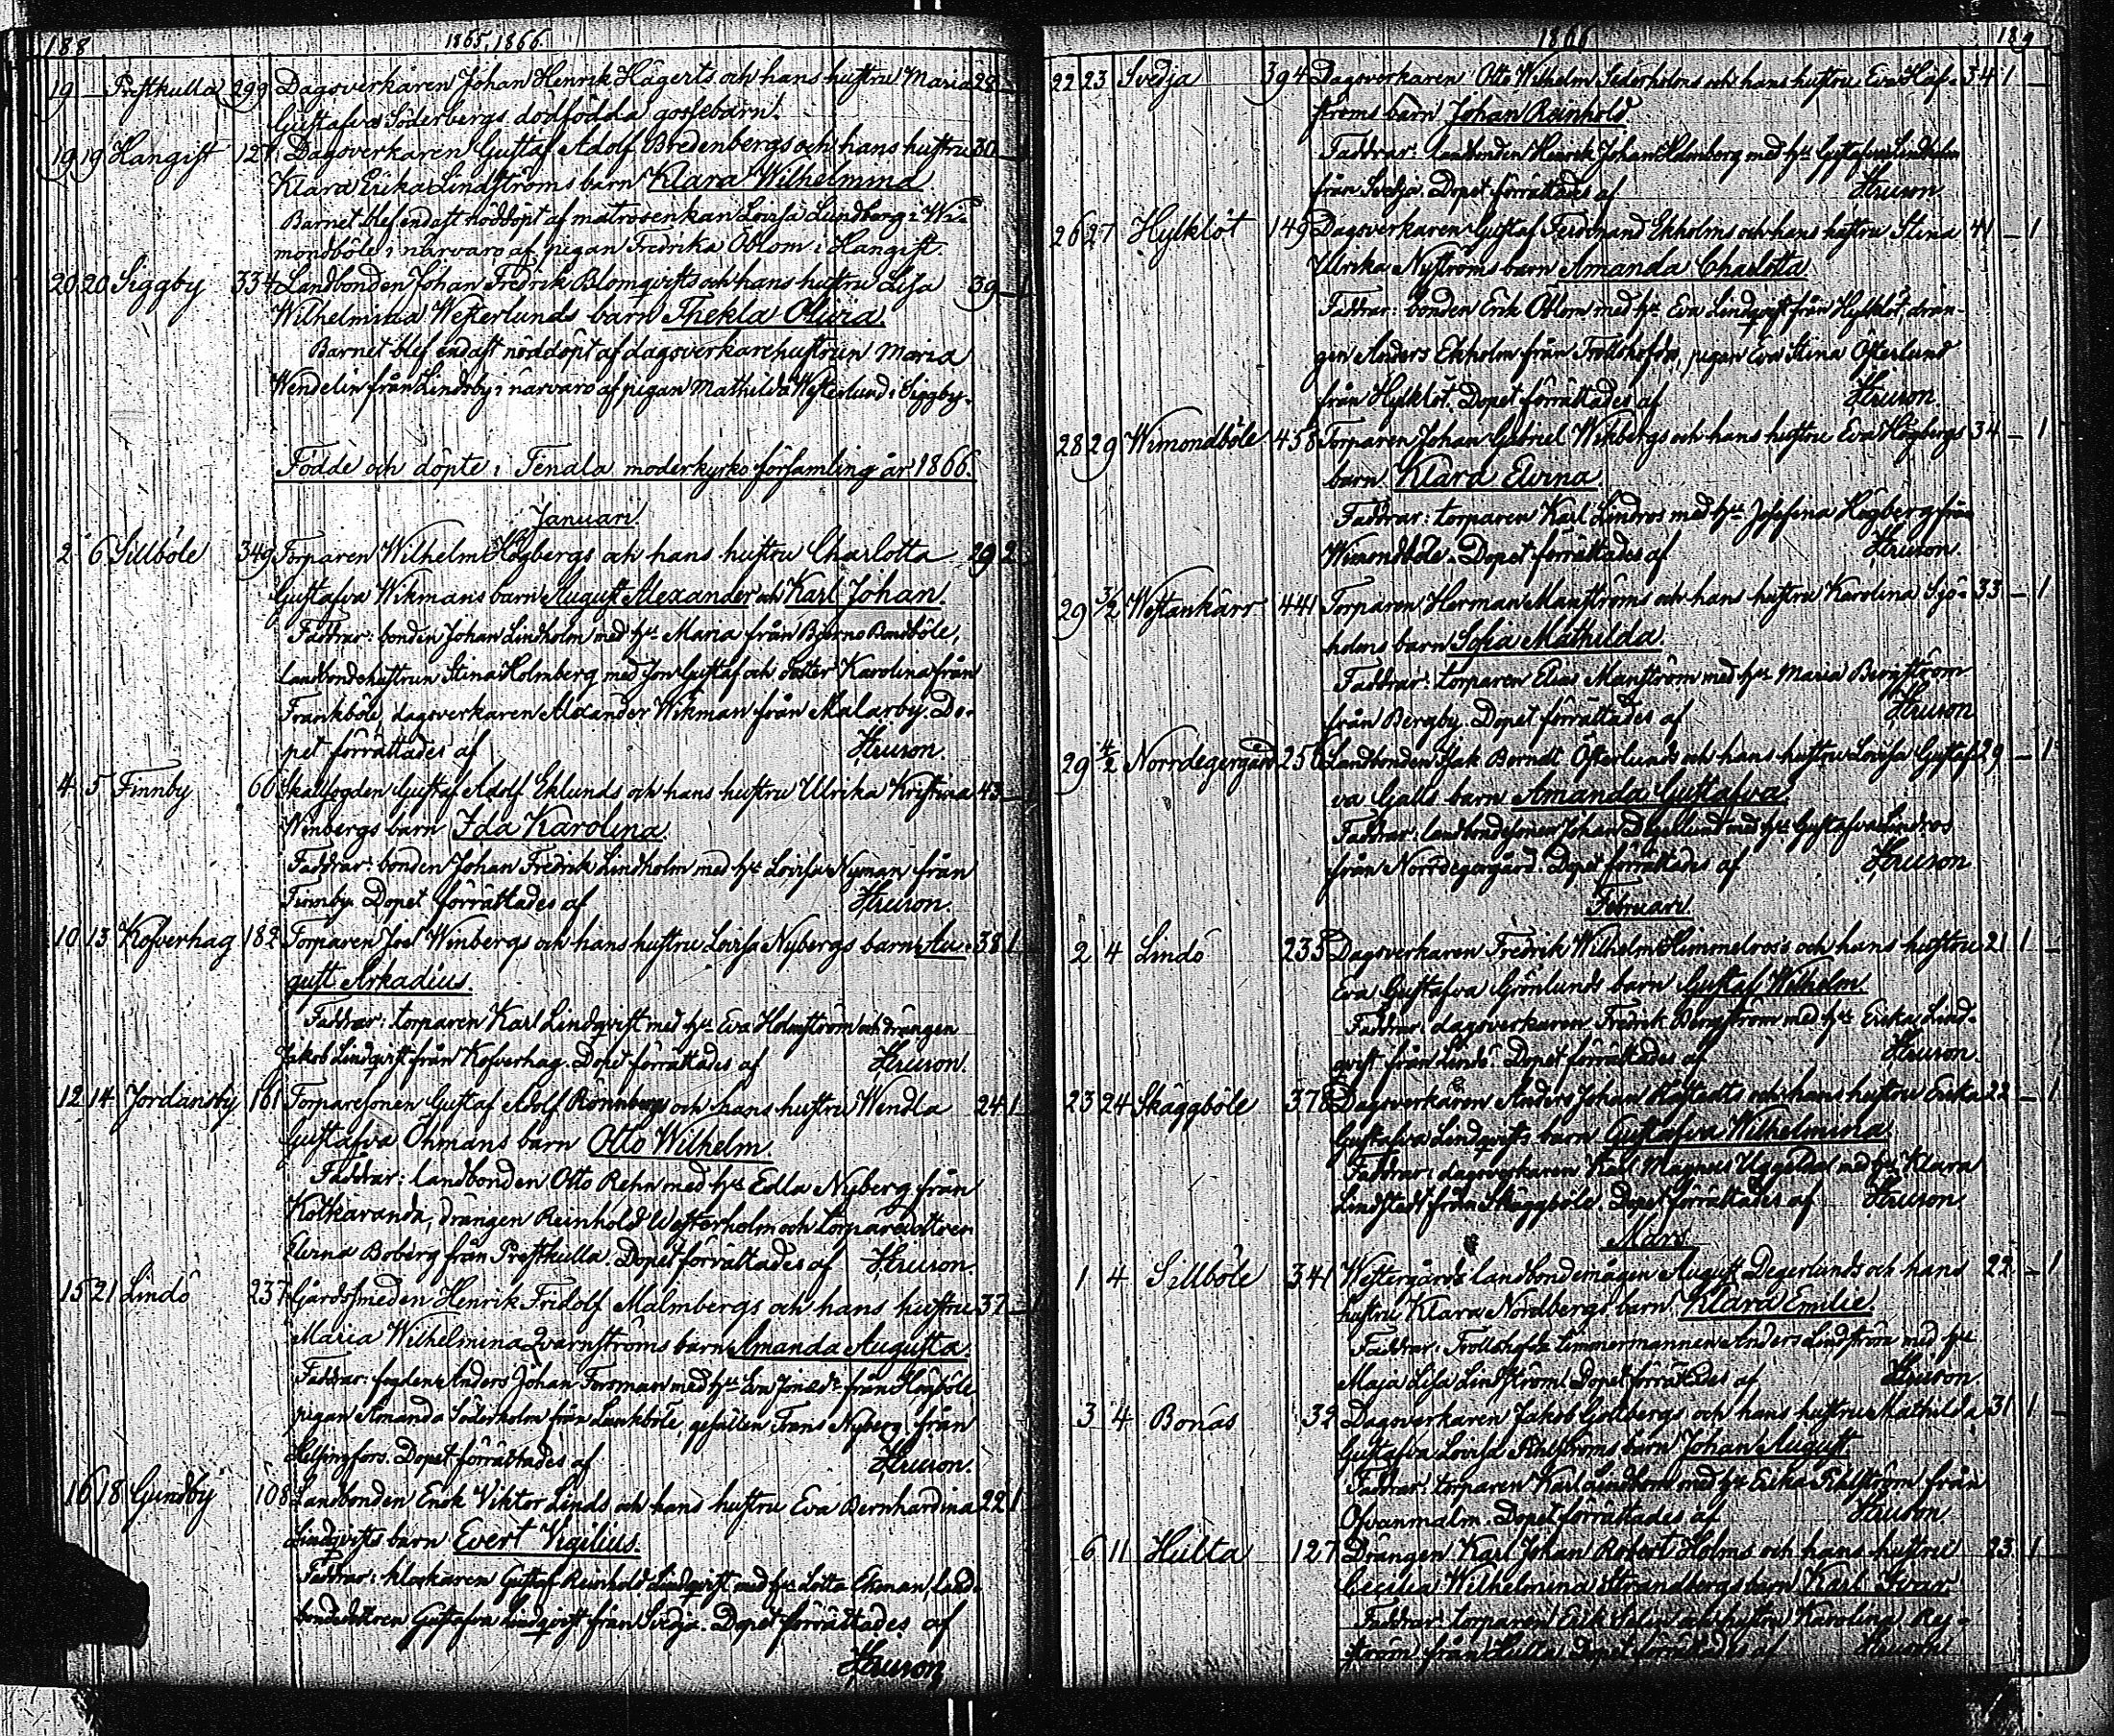 188 1865, 1866.
19 – Prestkulla 299 Dagsverkaren Johan Henrik Hägerts och hans hustru Maria 28 –
Gustafva Söderbergs dödfödda gossebarn.
19 19 Hangist 127 Dagsverkaren Gustaf Adolf Bredenbergs och hans hustru 30 –
Klara Erika Lindströms barn Klara Wilhelmina
Barnet blef endast nöddöpt af matrosenkan Lovisa Lundberg i Wi-
mondböle i närvaro af pigan Fredrika Öblom i Hangist.
20 20 Siggby 334 Landbonden Johan Fredrik Blomqvists och hans hustru Lisa 39 – 1
Wilhelmina Westerlunds barn Thekla Olivia.
Barnet blef endast nöddöpt af dagsverkarehustrun Maria
Wendelin från Lindsby i närvaro af pigan Mathilda Westerlund i Siggby.
Födde och döpte i Tenala moderkyrko församling år 1866.
Januari.
2 6 Sillböle 349 Torparen Wilhelm Högbergs och hans hustru Charlotta 29 2
Gustafva Wikmans barn August Alexander och Karl Johan.
Faddrar: bonden Johan Lindholm med hu Maria från Bjerno Bondböle,
landbondehustrun Stina Holmberg med son Gustaf och dotter Karolina från
Frankböle, dagsverkaren Alexander Wikman från Malarby. Do-
pet förrättades af Hruson.
4 5 Finnby 66 Skallfogden Gustaf Adolf Eklunds och hans hustru Ulrika Kristina 43 –
Winbergs barn Ida Karolina
Faddrar: bonden Johan Fredrik Lindholm med hu Lovisa Nyman från
Finnby. Dopet förrättades af Hruson.
10 13 Kofverhag 182 Torparen Joel Winbergs och hans hustru Lovisa Nybergs barn Au- 38 1
gust Arkadius.
Faddrar: torparen Karl Lindqvist med hu Eva Holmström och drängen
Jakob Lindqvist från Kofverhag. Dopet förrättades af Hruson.
12 14 Jordansby 161 Torparesonen Gustaf Adolf Rönnbergs och hans hustru Wendla 24 1
Gustafva Öhmans barn Otto Wilhelm.
Faddrar: landbonden Otto Rehn med hu Edla Nyberg från
Kolkaranda, drängen Reinhold Westerholm och torparedottren
Elvina Boberg från Prestkulla. Dopet förrättades af Hruson.
15 21 Lindö 237 Gårdssmeden Henrik Fridolf Malmbergs och hans hustru 37 – 1
Maria Wilhelmina Qvarnströms barn Amanda Augusta.
Faddrar: fogden Anders Johan Forsman med hu Eva från
pigan Amanda Söderholm från Lankböle, gesällen Frans Nyberg från
Helsingfors. Dopet förrättades af Hruson.
16 18 Gundby 108 Landbonden Enok Viktor Linds och hans hustru Eva Bernhardina 22 1
Lindqvists barn Evert Vigilius.
Faddrar: klockaren Gustaf Reinhold Lindqvist med hu Lotta Ekman, land-
bondedottren Gustafva Lindqvist från Svedja. Dopet förrättades af
Hruson
1866 189
22 23 Svedja 394 Dagsverkaren Otto Wilhelm Söderholms och hans hustru Eva Haf- 34 1 –
ströms barn Johan Reinhold
Faddrar: landbonden Henrik Johan Holmberg med hu Gustafva Lindholm
från Svedja. Dopet förrättades af Hruson
26 27 Hylklöt 149 Dagsverkaren Gustaf Ferdinand Ekholms och hans hustru Stina 41 – 1
Ulrika Nyströms barn Amanda Charlotta
Faddrar: bonden Erik Öblom med hu Eva Lindqvist från Hylklöt, drän-
gen Anders Ekholm från Trollshofda, pigan Eva Stina Österlund
från Hylklöt. Dopet förrättades af Hruson.
28 29 Wimondböle 458 Torparen Johan Gabriel Wikbergs och hans hustru Eva Högbergs 34 – 1
barn Klara Elvina.
Faddrar: torparen Karl Lindros med hu Josefina Högberg från
Wimondböle. Dopet förrättades af Hruson.
29 3/2 Westankärr 441 Torparen Herman Manströms och hans hustru Karolina Sjö- 33 – 1
holms barn Sofia Mathilda.
Faddrar: torparen Elias Manström med hu Maria Bergström
från Bergby. Dopet förrättades af Hruson
29 4/2 Norrdegergård 256 Landbonden Isak Berndt Österlunds och hans hustru Lovisa Gustaf- 29 – 1
va Galls barn Amanda Gustafva.
Faddrar: landbondesonen Johan Degerlund med hu Gustafva Lindros
från Norrdegergård. Dopet förrättades af Hruson
Februari.
2 4 Lindö 233 Dagsverkaren Fredrik Wilhelm Himmelross och hans hustru 21 1 –
Eva Gustafva Grönlunds barn Gustaf Wilhelm
Faddrar: dagsverkaren Fredrik Bergström med hu Erika Lind-
qvist från Lindö. Dopet förrättades af Hruson.
23 24 Skäggböle 378 Dagsverkaren Anders Johan Hästedts och hans hustru Erika 22 – 1
Gustafva Lindqvists barn Gustafva Wilhelmina.
Faddrar: dagsverkaren Karl Magnus med hu Klara
Lindstedt från Skäggböle. Dopet förrättades af Hruson
Mars
1 4 Sillböle 341 Westergårds landbondemågen August Degerlunds och hans 22 – 1
hustru Klara Nordbergs barn Klara Emilie.
Faddrar: Trollshofda timmermannen Anders Lindström med hu
Maja Lisa Lindström. Dopet förrättades af Hruson.
3 4 Bonäs 32 Dagsverkaren Jakob Gottbergs och hans hustru Mathilda 31 1 –
Gustafva Lovisa Fihlströms barn Johan August.
Faddrar: torparen Karl Lindblom med hu Erika Fihlström från
Ofvanmalm. Dopet förrättades af Hruson
6 11 Hulta 127 Drängen Karl Johan Robert Holms och hans hustru 23 1
Cecilia Wilhelmina Strandbergs barn Karl Ivar.
Faddrar: torparen Erik och hustru Karolina Rej-
ström från Hulta. Dopet förrättades af Hruson